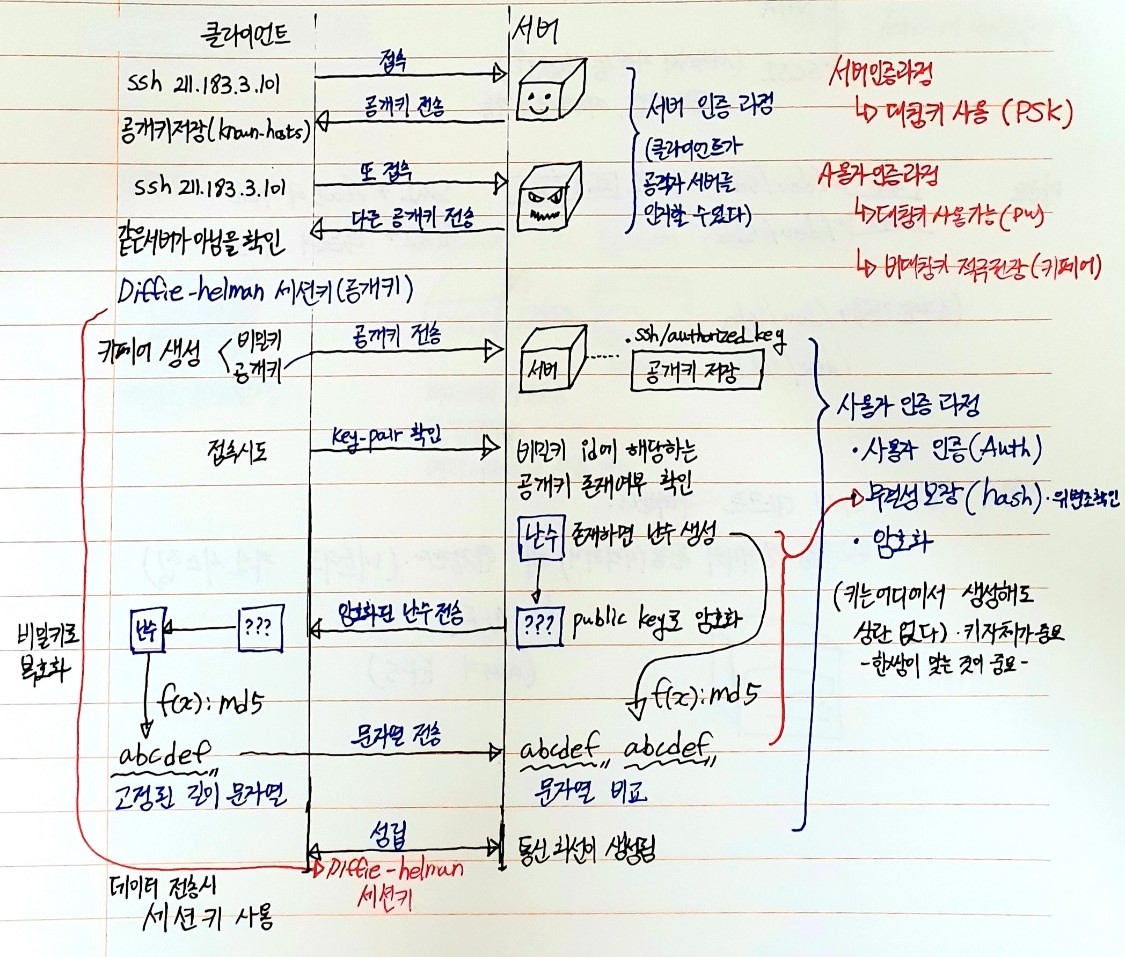 클라이언트
서버
ssh 211.183.3.101
접속
공개키 전송
공개키저장(known-hosts)
ssh 211.183.3.101
또 접속
다른 공개키 전송
같은서버가 아님을 확인
서버 인증 과정
(클라이언트가
공격자 서버를
인지할 수 있다)
서버인증과정
↳ 대칭키 사용 (PSK)
사용자인증과정
↳ 대칭키 사용가능 (PW)
↳ 비대칭키 적극권장 (키페어)
Diffie-helman 세션키(공개키)
키페어 생성
비밀키
공개키
공개키 전송
서버
.ssh/authorized_key
공개키 저장
접속시도
key-pair 확인
비밀키 id에 해당하는
공개키 존재여부 확인
난수 존재하면 난수 생성
??? public key로 암호화
암호화된 난수 전송
난수
???
비밀키로
복호화
f(x): md5
f(x): md5
abcdef
문자열 전송
abcdef
abcdef
고정된 길이 문자열
문자열 비교
사용자 인증 과정
• 사용자 인증(Auth)
무결성 보장(hash) · 위변조확인
• 암호화
(키는 어디에서 생성해도
상관 없다) · 키자체가 중요
-한쌍이 맞는 것이 중요-
성립
통신 회선이 생성됨
Diffie-helman
세션키
데이터 전송시
세션키 사용